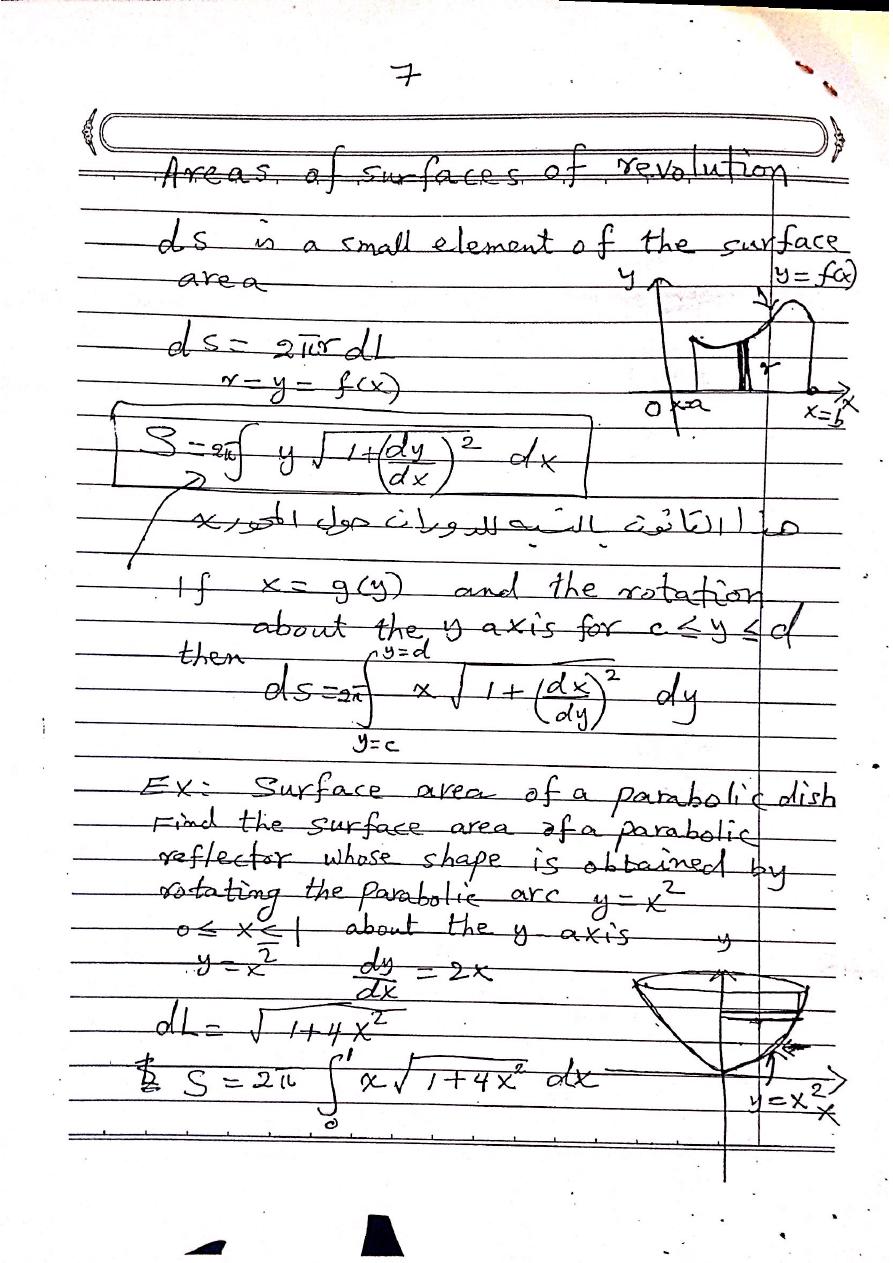 7
Areas of surfaces of revolution
ds is a small element of the surface
area
y
y = f(x)
ds = 2πr dL
r = y = f(x)
r
0 x=a
x=b
x
S = 2π∫ y √(1+(dy/dx)²) dx
هذا القانون بالنسبه للدوران حول المحور x
If x = g(y) and the rotation
about the y axis for c ≤ y ≤ d
then
ds = 2π ∫_{y=c}^{y=d} x √(1 + (dx/dy)²) dy
EX: Surface area of a parabolic dish
Find the surface area of a parabolic
reflector whose shape is obtained by
rotating the parabolic arc y = x²
0 ≤ x ≤ 1 about the y-axis
y
y = x² dy/dx = 2x
dL = √(1+4x²)
S = 2π ∫₀¹ x √(1+4x²) dx
y = x²
x